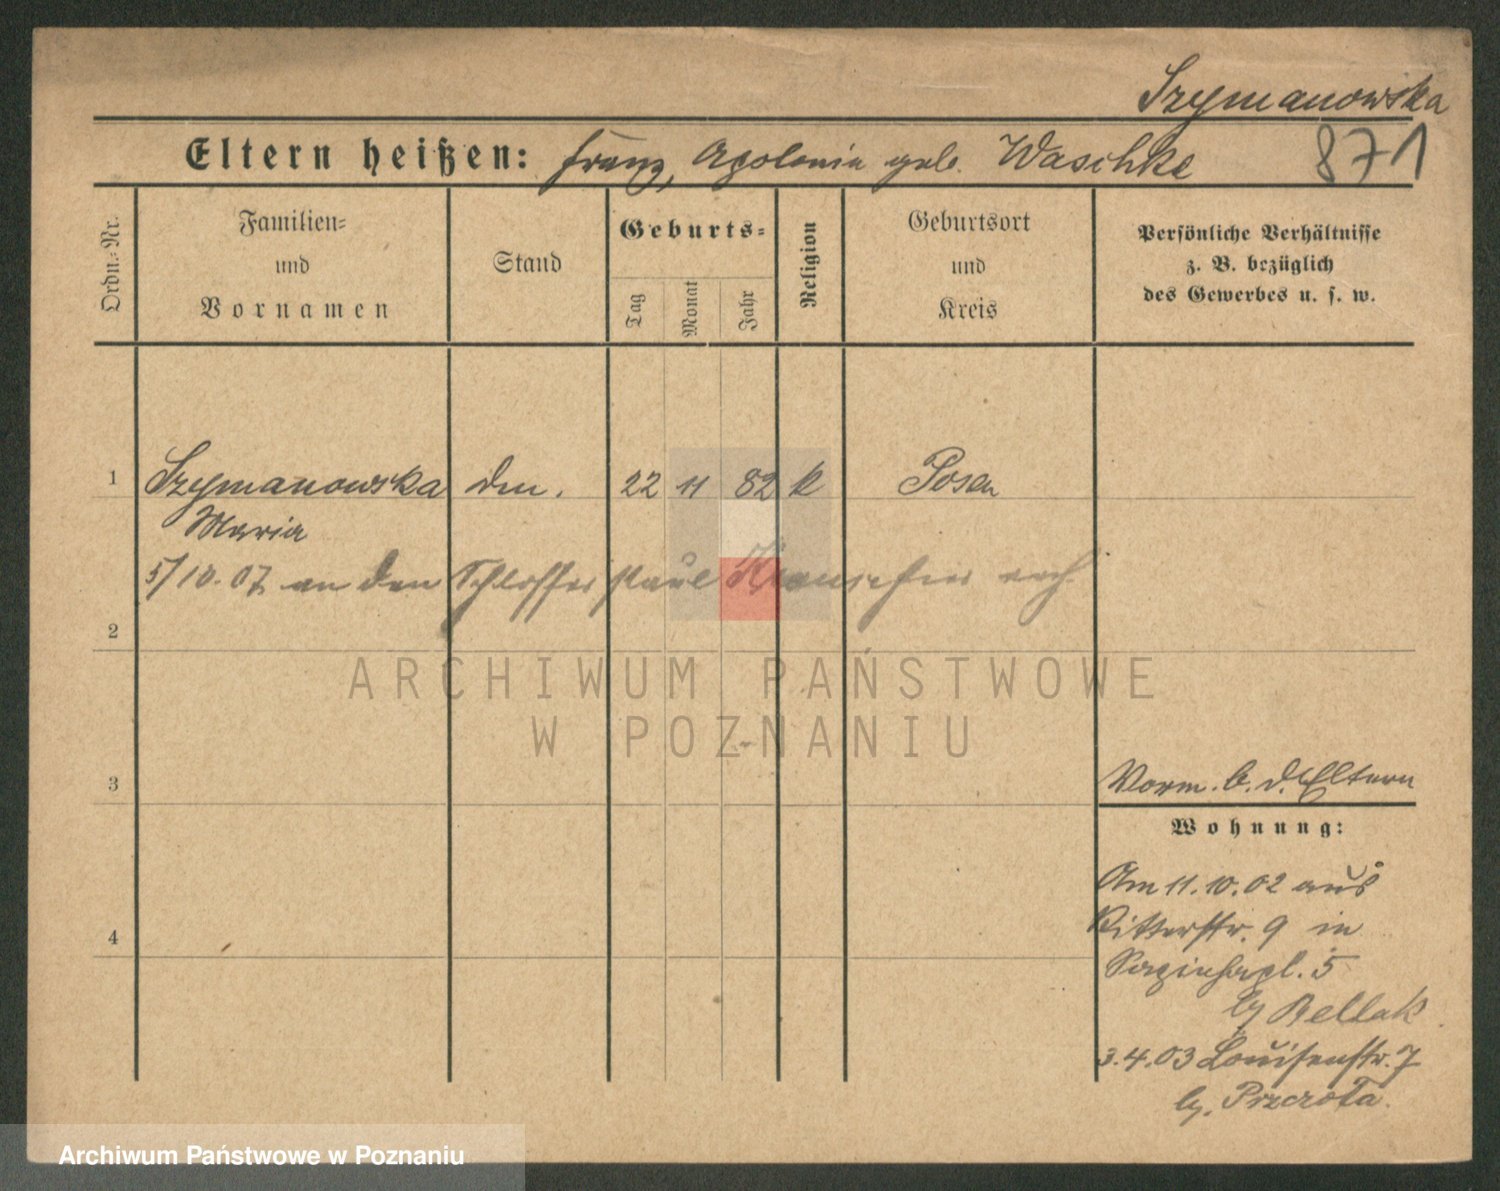 Szymanowska
871
Eltern heißen: Franz, Apolonia geb. Waschke
Ordn.-Nr.
Familien-
und
Vornamen
Stand
Geburts-
Tag
Monat
Jahr
Religion
Geburtsort
und
Kreis
Persönliche Verhältnisse
z. B. bezüglich
des Gewerbes u. s. w.
1 Szymanowska 22 11 82 k Posen
Maria
5/10.07 an den Schlosser Paul verh.
2
3
Vorm. b. d. Eltern
Wohnung:
Am 11.10.02 aus
Ritterstr. 9 in
4
Sapiehapl. 5
by Bellak
3.4.03 Louisenstr. 7
by.
ARCHIWUM PAŃSTWOWE
W POZNANIU
Archiwum Państwowe w Poznaniu